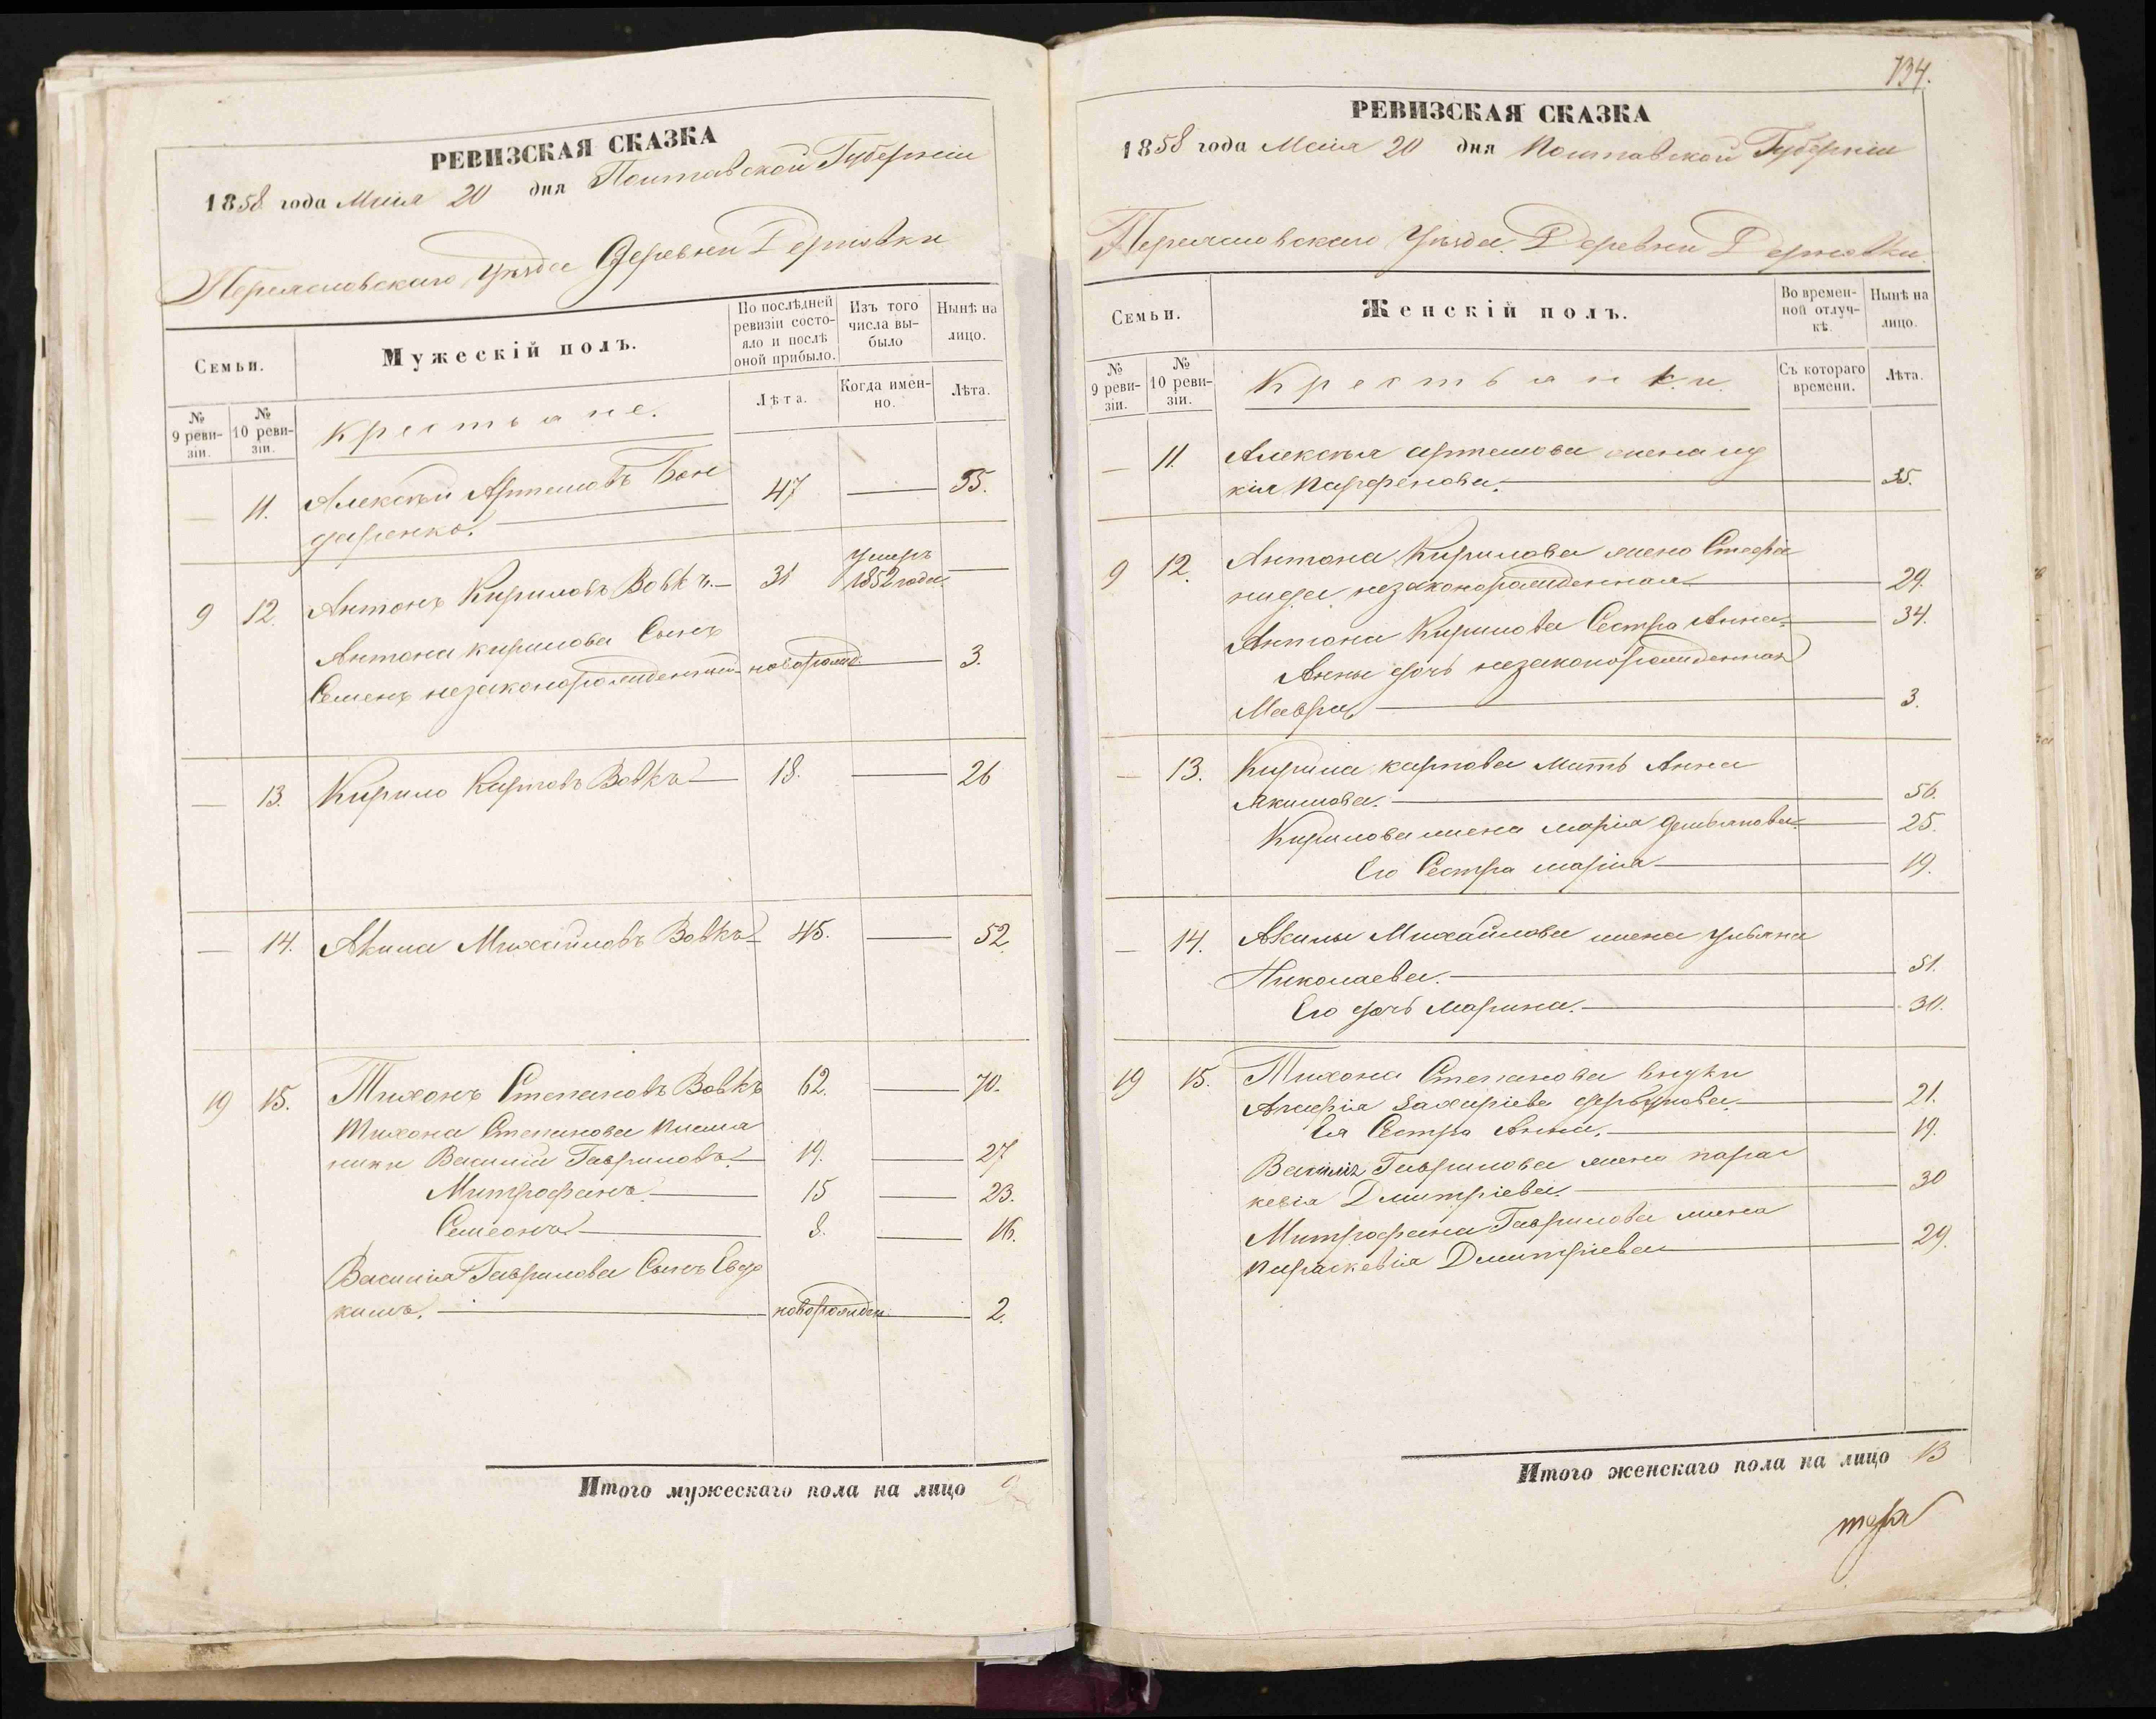 РЕВИЗСКАЯ СКАЗКА
1858 года Маія 20 дня Полтавской Губерніи
Переясловскаго Уѣзда Деревни
Семьи.
Мужескій полъ.
По послѣдней ревизіи состо-
яло и послѣ
оной прибыло.
Изъ того
числа вы-
было
Нынѣ на
лицо.
№
9 реви-
зіи.
№
10 реви-
зіи.
Крестьяне.
Лѣта.
Когда имен-
но.
Лѣта.
— 11. Алексѣй Артемовъ Бон 47 — 55.
даренко.
9 12. Антонъ Кириловъ Вовкъ.— 31 Умеръ
1852 года —
Антона Кирилова Сынъ
Семенъ незаконорожденный новорожд. — 3.
— 13. Кирило Карповъ Вовкъ — 18. — 26
— 14. Акила Михайловъ Вовкъ — 45. — 52.
19 15. Тихонъ Степановъ Вовкъ 62. — 70.
Тихона Степанова племя
ники Василій Гавриловъ — 19. — 27
Митрофанъ. — 15 — 23.
Семеонъ — 8. — 16.
Василія Гаврилова Сынъ Евдо
кимъ. — новорожден. — 2.
Итого мужескаго пола на лицо
134.
РЕВИЗСКАЯ СКАЗКА
1858 года Маія 20 дня Полтавской Губерніи
Переясловскаго Уѣзда Деревни
Семьи.
Женскій полъ.
Во времен-
ной отлуч-
кѣ.
Нынѣ на
лицо.
№
9 реви-
зіи.
№
10 реви-
зіи.
Крестьянки.
Съ котораго
времени.
Лѣта.
— 11. Алексѣя Артемова жена
Парфенова. — 35.
9 12. Антона Кирилова жена Стефа
нида незаконорожденная — 29.
Антона Кирилова Сестра Анна — 34.
Анны дочь незаконорожденная
Мавра — 3.
— 13. Кирила Карпова мать Анна
Якимова. — 56.
Кирилова жена Марія Демьянова — 25.
Его Сестра Марія — 19.
— 14. Акилы Михайлова жена Ульяна
Николаева. — 51.
Его дочь Марина. — 30.
19 15. Тихона Степанова внуки
Захаріева — 21.
Ея Сестра Анна. — 19.
Василія Гаврилова жена Парас
кевія Дмитріева. — 30
Митрофана Гаврилова жена
Параскевія Дмитріева — 29.
Итого женскаго пола на лицо 13